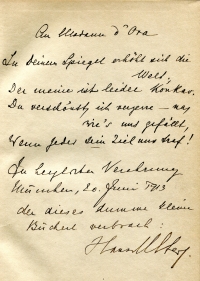 An Madame d'Ora
In Deinem Spiegel erhöht sich die
Welt,
Der meine ist leider Konkav.
Du verschönst, ich verzerre – nach
wie's uns gefällt,
Wenn jedes sein Ziel nur traf!
In Verehrung
München, 20. Juni 1913
der dieses dumme kleine
Büchel verbrach:
Hans